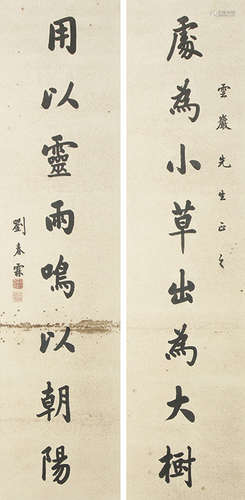 雲巖先生正之
處為小草出為大樹
用以靈雨鳴以朝陽
劉春霖